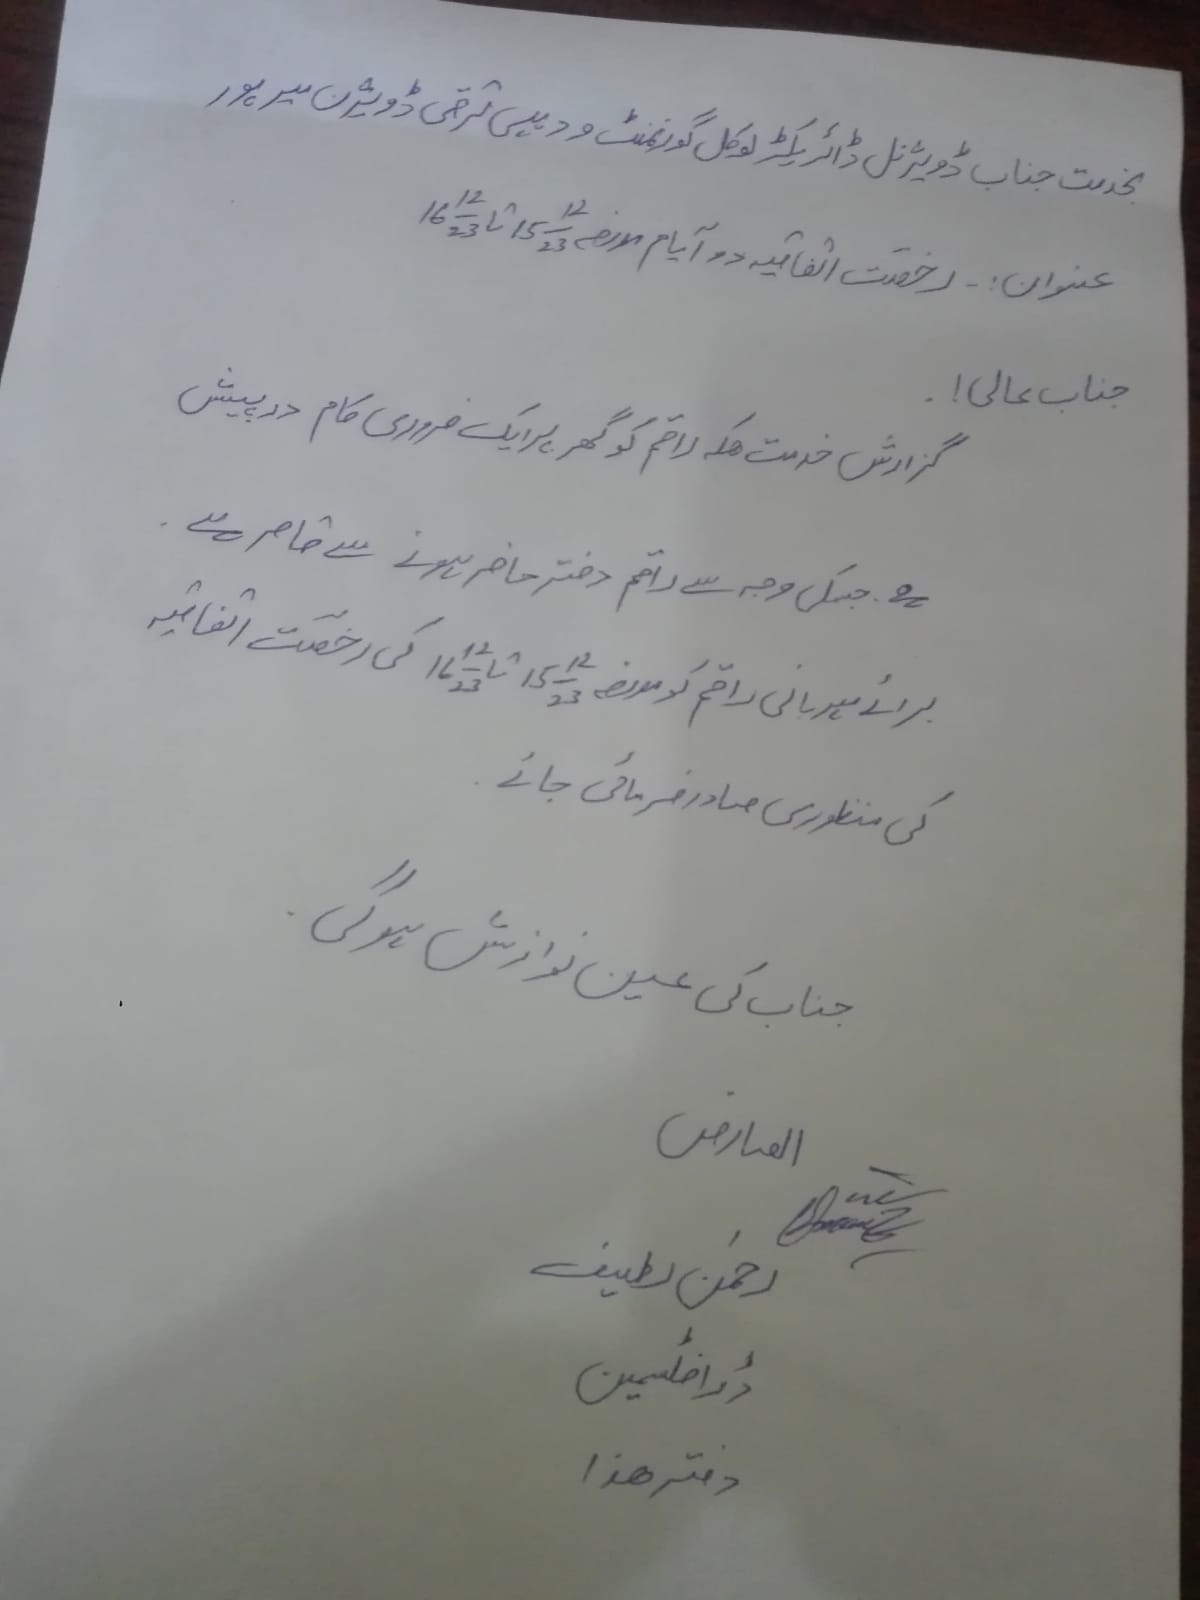 بخدمت جناب ڈویژنل ڈائریکٹر لوکل گورنمنٹ و دیہی ترقی ڈویژن میرپور
عنوان:۔ رخصت اتفاقیہ دو آیام مورخہ 15-12-23 تا 16-12-23
جناب عالی!۔
گزارش خدمت ھیکہ راقم کو گھر پر ایک ضروری کام درپیش
ہے۔ جسکی وجہ سے راقم دفتر حاضر ہونے سے قاصر ہے۔
برائے مہربانی راقم کو مورخہ 15-12-23 تا 16-12-23 کی رخصت اتفاقیہ
کی منظوری صادر فرمائی جائے۔
جناب کی عین نوازش ہوگی۔
العارض
رحمٰن لطیف
ڈرافٹسمین
دفتر ھذا